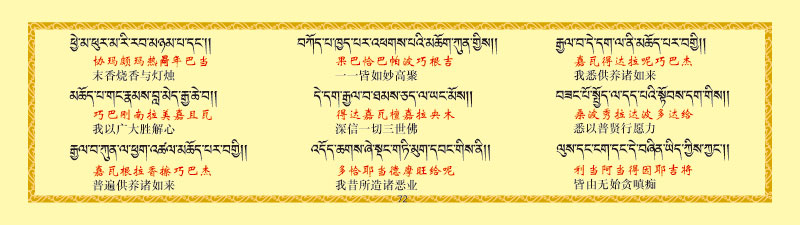 ཕྱེ་མ་ཕུར་མ་རི་རབ་མཉམ་པ་དང་།།
协玛颇玛热年巴当
末香烧香与灯烛
བཀོད་པ་ཁྱད་པར་འཕགས་པའི་མཆོག་ཀུན་གྱིས།།
果巴恰巴帕波巧根吉
一一皆如妙高聚
རྒྱལ་བ་དེ་དག་ལ་ནི་མཆོད་པར་བགྱི།།
嘉瓦得达拉呢巧巴杰
我悉供养诸如来
མཆོད་པ་གང་རྣམས་བླ་མེད་རྒྱ་ཆེ་བ།།
巧巴刚南拉美嘉且瓦
我以广大胜解心
དེ་དག་རྒྱལ་བ་ཐམས་ཅད་ལ་ཡང་མོས།།
得达嘉瓦檀嘉拉央木
深信一切三世佛
བཟང་པོ་སྤྱོད་ལ་དད་པའི་སྟོབས་དག་གིས།།
桑波秀拉达波多达给
悉以普贤行愿力
རྒྱལ་བ་ཀུན་ལ་ཕྱག་འཚལ་མཆོད་པར་བགྱི།།
嘉瓦根拉香擦巧巴杰
普遍供养诸如来
འདོད་ཆགས་ཞེ་སྡང་གཏི་མུག་དབང་གིས་ནི།།
多恰耶当德摩旺给呢
我昔所造诸恶业
ལུས་དང་ངག་དང་དེ་བཞིན་ཡིད་ཀྱིས་ཀྱང་།།
利当阿当得因耶吉将
皆由无始贪嗔痴
72